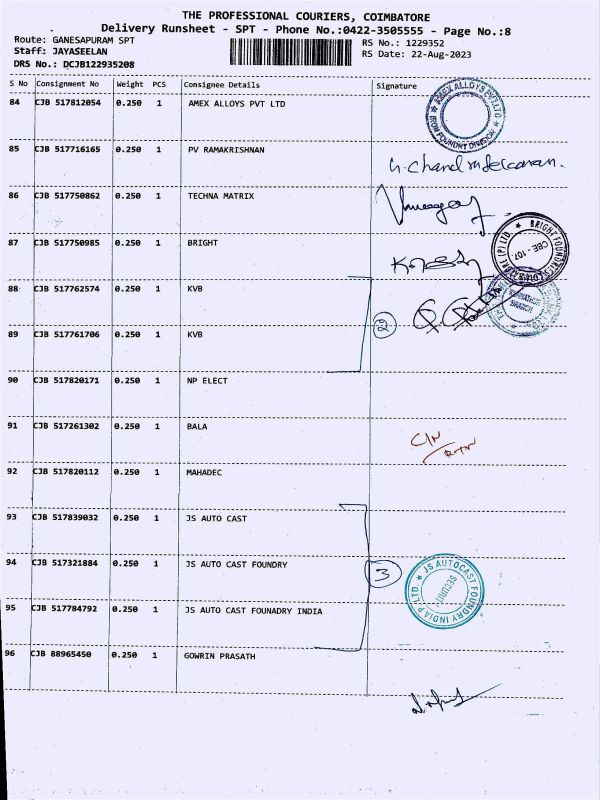 THE PROFESSIONAL COURIERS, COIMBATORE
Delivery Runsheet - SPT - Phone No.:0422-3505555 - Page No.:8
Route: GANESAPURAM SPT
RS No.: 1229352
Staff: JAYASEELAN
RS Date: 22-Aug-2023
DRS No.: DCJB122935208
S No Consignment No Weight PCS Consignee Details Signature
84 CJB 517812054 0.250 1 AMEX ALLOYS PVT LTD
AMEX ALLOYS PVT.LTD
IRON FOUNDRY DIVISION
85 CJB 517716165 0.250 1 PV RAMAKRISHNAN
86 CJB 517750862 0.250 1 TECHNA MATRIX
87 CJB 517750985 0.250 1 BRIGHT
CBE - 107
88 CJB 517762574 0.250 1 KVB
2
BRANCH
89 CJB 517761706 0.250 1 KVB
90 CJB 517820171 0.250 1 NP ELECT
91 CJB 517261302 0.250 1 BALA
C/N
RTN
92 CJB 517820112 0.250 1 MAHADEC
93 CJB 517839032 0.250 1 JS AUTO CAST
94 CJB 517321884 0.250 1 JS AUTO CAST FOUNDRY
3
JS AUTOCAST FOUNDRY INDIA P LTD.
SECURITY
95 CJB 517784792 0.250 1 JS AUTO CAST FOUNADRY INDIA
96 CJB 88965450 0.250 1 GOWRIN PRASATH